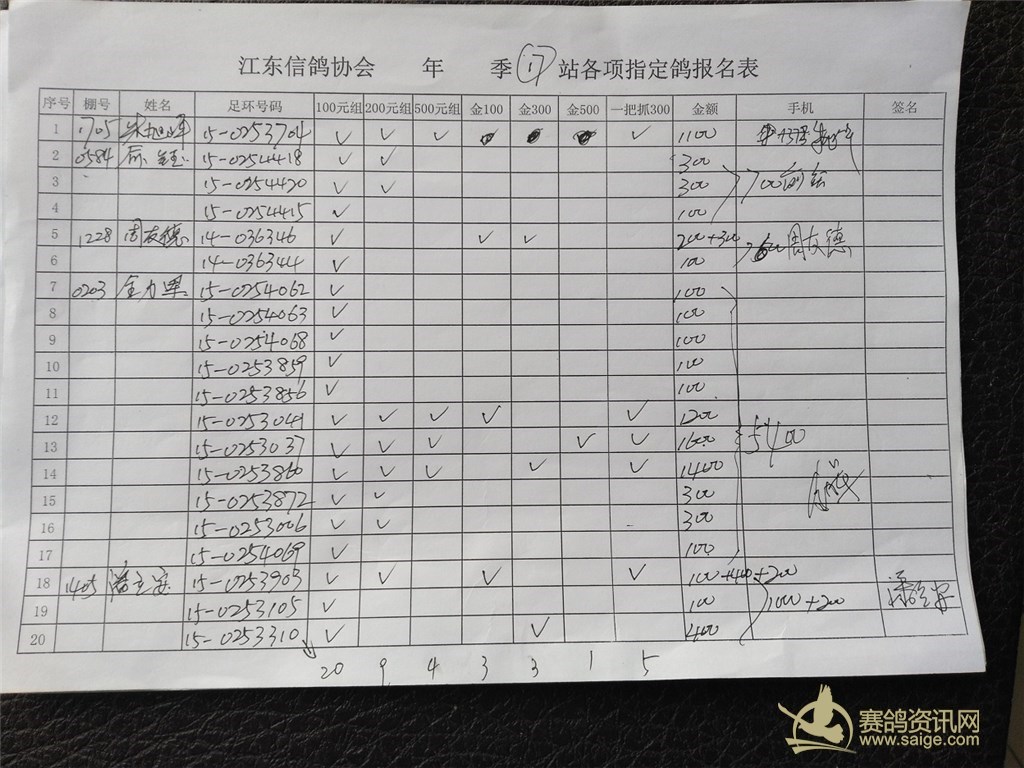 江东信鸽协会 年 季 17 站各项指定鸽报名表
序号 棚号 姓名 足环号码 100元组 200元组 500元组 金100 金300 金500 一把抓300 金额 手机 签名
1 1705 15-0253704 ✓ ✓ ✓ ✓ 1100
2 0584 15-0254418 ✓ ✓ 300
3 15-0254420 ✓ ✓ 300 700
4 15-0254415 ✓ 100
5 1228 周友德 14-036346 ✓ ✓ ✓ 200+300 周友德
6 14-036344 ✓ 100
7 0203 15-0254062 ✓ 100
8 15-0254063 ✓ 100
9 15-0254068 ✓ 100
10 15-0253859 ✓ 100
11 15-0253856 ✓ 100
12 15-0253041 ✓ ✓ ✓ ✓ ✓ 1200
13 15-0253037 ✓ ✓ ✓ ✓ ✓ 1600 5400
14 15-0253860 ✓ ✓ ✓ ✓ ✓ 1400
15 15-0253872 ✓ ✓ 300
16 15-0253006 ✓ ✓ 300
17 15-0254069 ✓ 100
18 1405 15-0253903 ✓ ✓ ✓ ✓ 100+400+200
19 15-0253105 ✓ 100 1000+200
20 15-0253310 ✓ ✓ 400
20 9 4 3 3 1 5
赛鸽资讯网
www.saige.com